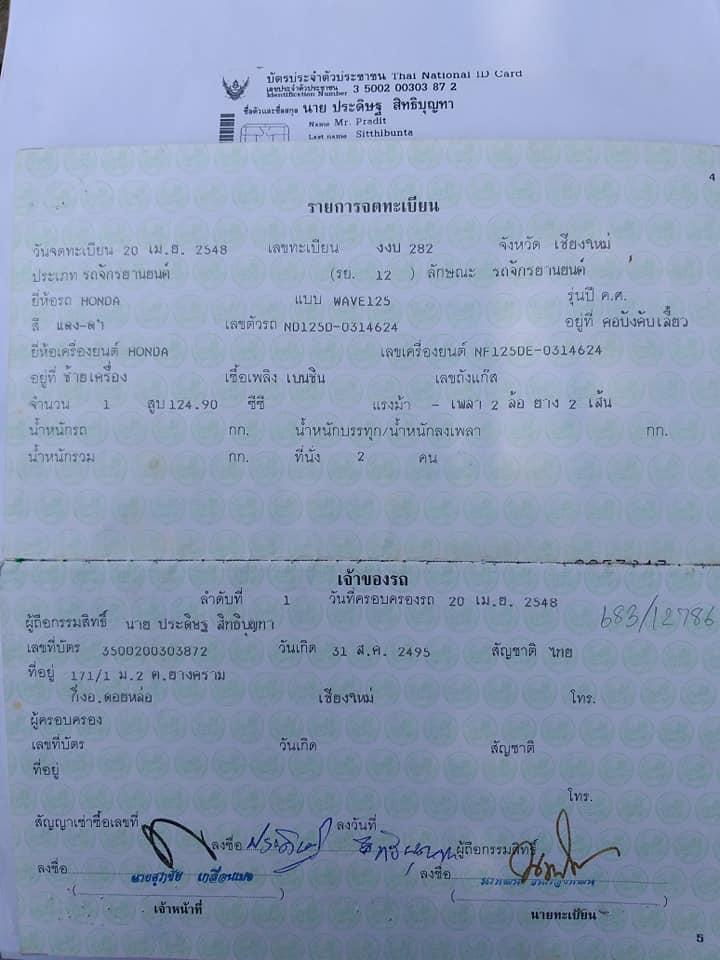 บัตรประจำตัวประชาชน Thai National ID Card
เลขประจำตัวประชาชน 3 5002 00303 87 2
Identification Number
ชื่อตัวและชื่อสกุล นาย ประดิษฐ สิทธิบุญทา
Name Mr. Pradit
Last name Sitthibunta
4
รายการจดทะเบียน
วันจดทะเบียน 20 เม.ย. 2548 เลขทะเบียน งงบ 282 จังหวัด เชียงใหม่
ประเภท รถจักรยานยนต์ (รย. 12 ) ลักษณะ รถจักรยานยนต์
ยี่ห้อรถ HONDA แบบ WAVE125 รุ่นปี ค.ศ.
สี แดง-ดำ เลขตัวรถ ND125D-0314624 อยู่ที่ คอบังคับเลี้ยว
ยี่ห้อเครื่องยนต์ HONDA เลขเครื่องยนต์ NF125DE-0314624
อยู่ที่ ซ้ายเครื่อง เชื้อเพลิง เบนซิน เลขถังแก๊ส
จำนวน 1 สูบ 124.90 ซีซี แรงม้า - เพลา 2 ล้อ ยาง 2 เส้น
น้ำหนักรถ กก. น้ำหนักบรรทุก/น้ำหนักลงเพลา กก.
น้ำหนักรวม กก. ที่นั่ง 2 คน
เจ้าของรถ
ลำดับที่ 1 วันที่ครอบครองรถ 20 เม.ย. 2548
683/12786
ผู้ถือกรรมสิทธิ์ นาย ประดิษฐ สิทธิบุญทา
เลขที่บัตร 3500200303872 วันเกิด 31 ส.ค. 2495 สัญชาติ ไทย
ที่อยู่ 171/1 ม.2 ต.ยางคราม
กิ่งอ.ดอยหล่อ เชียงใหม่ โทร.
ผู้ครอบครอง
เลขที่บัตร วันเกิด สัญชาติ
ที่อยู่
โทร.
สัญญาเช่าซื้อเลขที่ ลงวันที่
ลงชื่อ ผู้ถือกรรมสิทธิ์
ลงชื่อ ลงชื่อ
เจ้าหน้าที่ นายทะเบียน
5